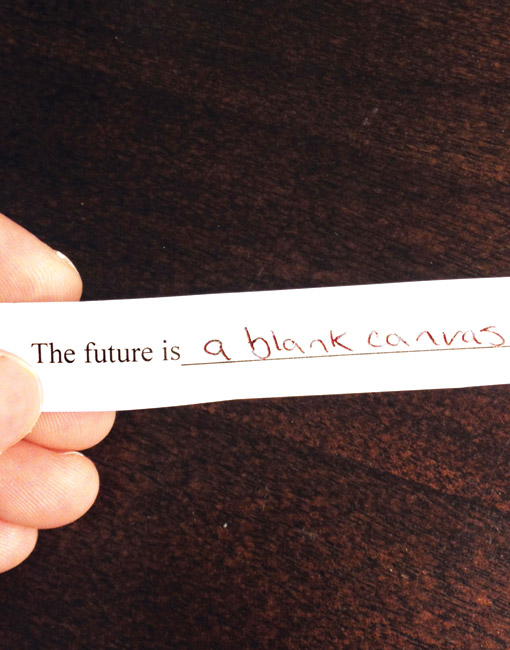 The future is a blank canvas